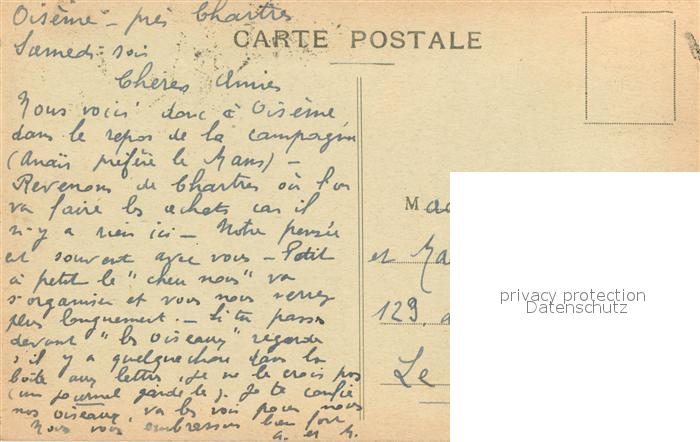 Oisème - près Chartres
Samedi soir
CARTE POSTALE
Chères Amies
Nous voici donc à Oisème
dans le repos de la campagne
(Anaïs préfère le Mans) -
Revenons de Chartres où l'on
va faire les achats car il
n-y a rien ici - Notre pensée
est souvent avec vous - Petit
à petit le "chez nous" va
s'organiser et vous nous verrez
plus longuement. - Si tu passes
devant "les Oiseaux" regarde
s'il y a quelquechose dans la
boîte aux lettres, je ne le crois pas
(un journal garde le). Je te confie
nos oiseaux, va les voir pour nous
Nous vous embrassons bien fort
A. et
Mad
et Ma
129,
Le
privacy protection
Datenschutz